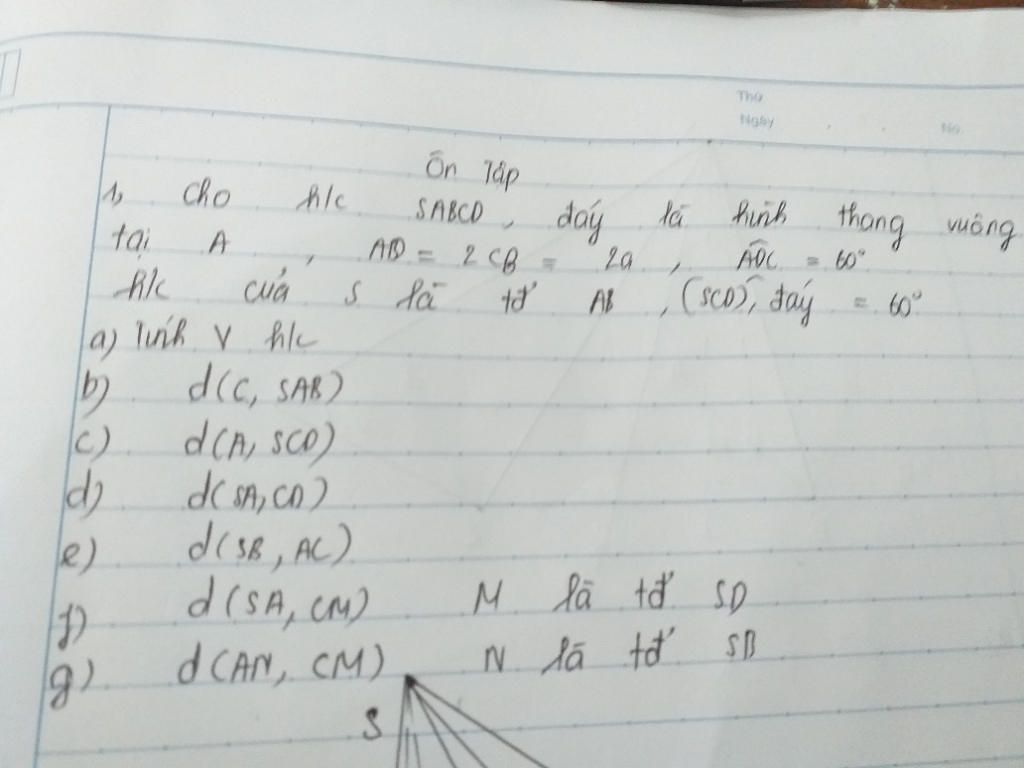 Thứ
Ngày No.
Ôn tập
1, Cho h/c SABCD, đáy là hình thang vuông
tại A, AD = 2CB = 2a, ADC = 60°
h/c của S là tđ AB, (SCD), đáy = 60°
a) Tính V h/c
b) d(C, SAB)
c) d(A, SCD)
d) d(SA, CD)
e) d(SB, AC)
f) d(SA, CM) M là tđ SD
g) d(AN, CM) N là tđ SB
S